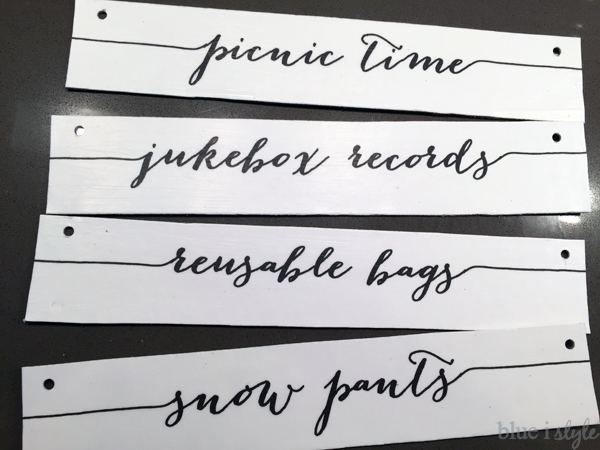 picnic time
jukebox records
reusable bags
snow pants
blue i style